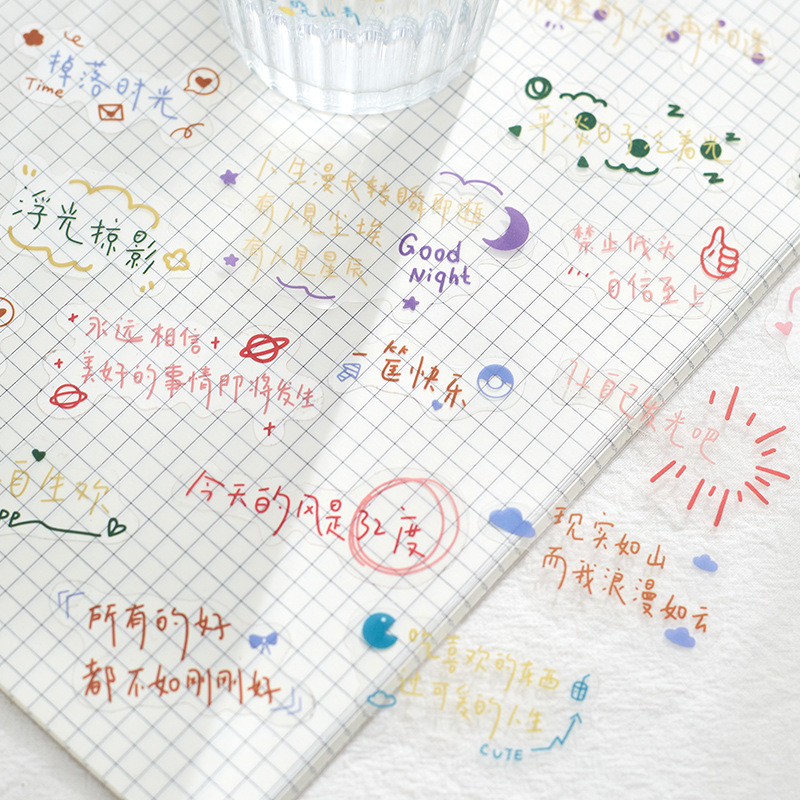 吃山
相逢的人会再相逢
掉落时光
Time
平淡日子泛着光
z
z
z
浮光掠影
人生漫长转瞬即逝
有人见尘埃
有人见星辰
Good
Night
禁止低头
自信至上
永远相信
美好的事情即将发生
一筐快乐
让自己发光吧
自生欢
今天的风是32度
现实如山
而我浪漫如云
『所有的好
都不如刚刚好』
吃喜欢的东西
过可爱的人生
CUTE